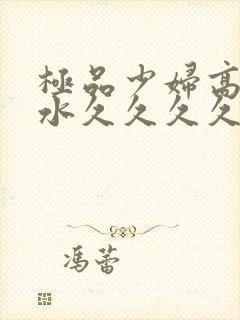 極品少婦高
水久久久久
馮蕾